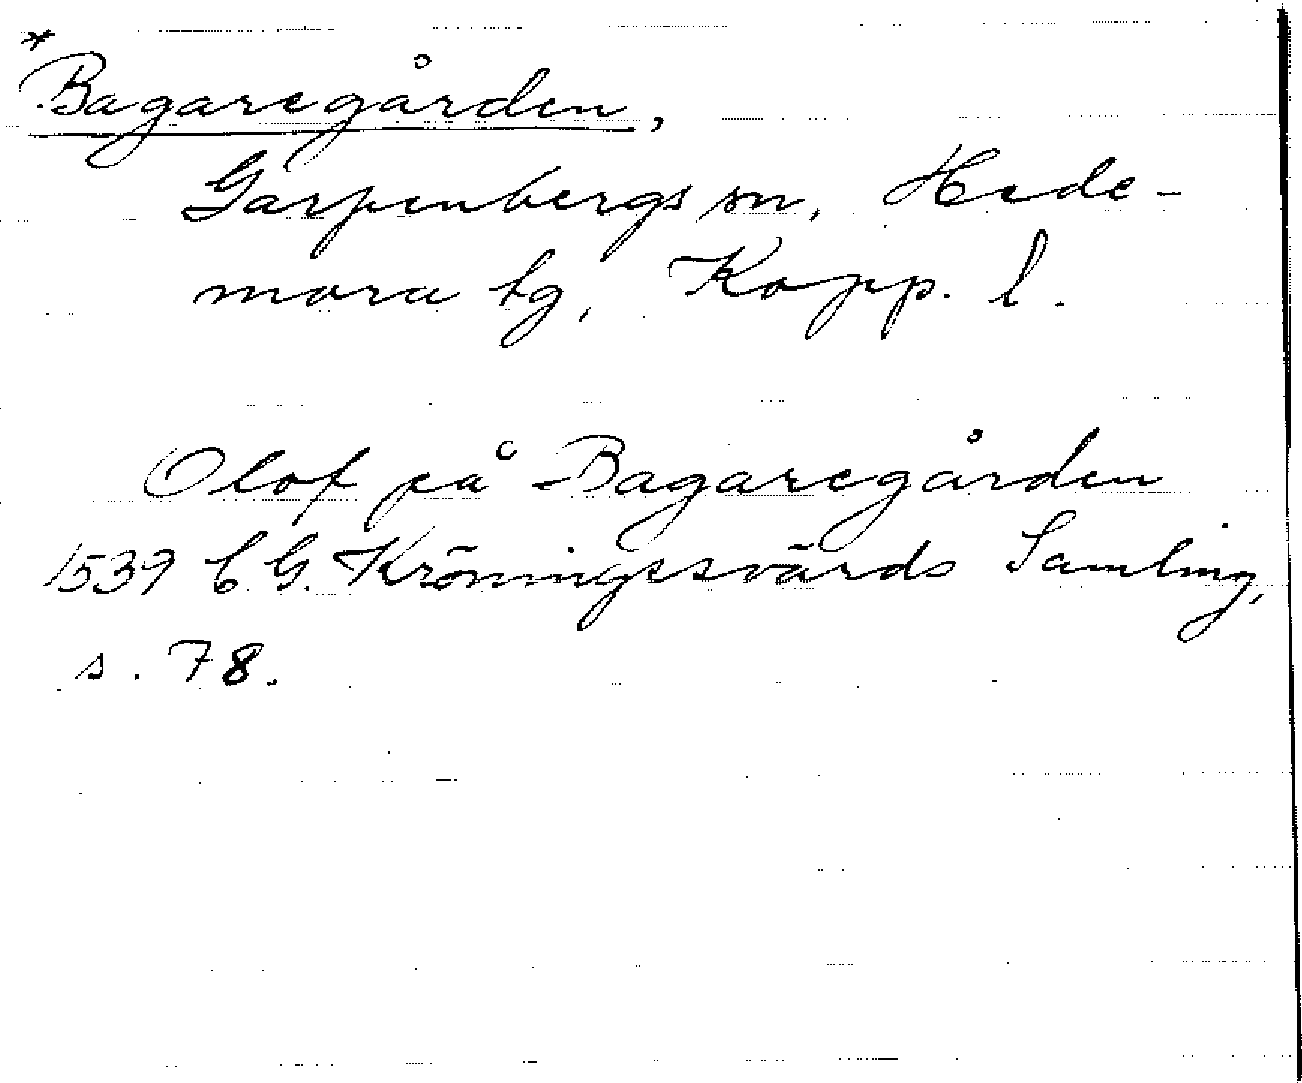 *
Bagaregården,
Garpenbergs sn, Hede-
mora tg, Kopp. l.
Olof på Bagaregården
1539 C. G. Kröningssvärds Samling,
s. 78.